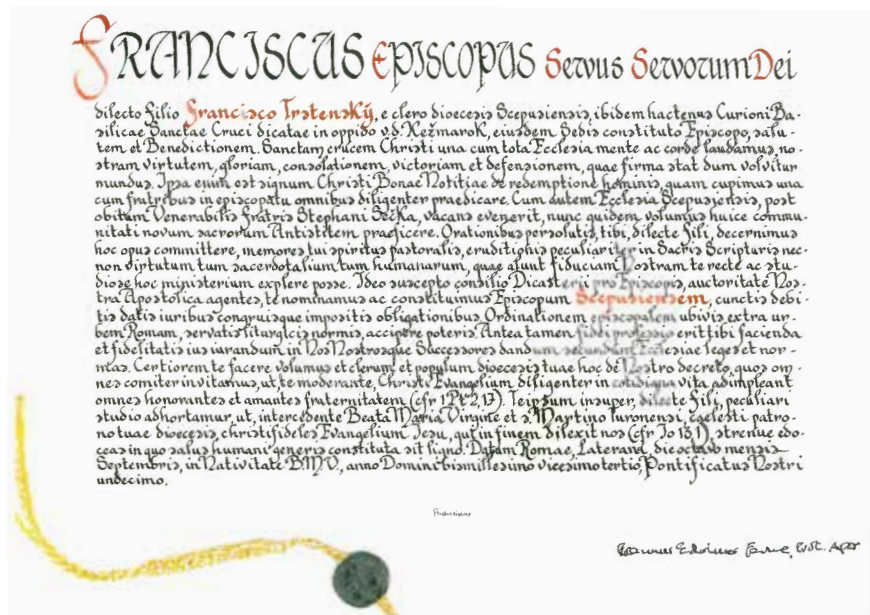 FRANCISCUS EPISCOPUS Servus Servorum Dei
dilecto filio Francisco Trstenský, e clero dioecesis Scepusiensis, ibidem hactenus Curioni Ba-
silicae Sanctae Cruci dicatae in oppido v.d. Kežmarok, eiusdem Sedis constituto Episcopo, salu-
tem et Benedictionem. Sanctam crucem Christi una cum tota Ecclesia mente ac corde laudamus, no-
stram virtutem, gloriam, consolationem, victoriam et defensionem, quae firma stat dum volvitur
mundus. Ipsa enim est signum Christi Bonae Notitiae de redemptione hominis, quam cupimus una
cum fratribus in episcopatu omnibus diligenter praedicare. Cum autem Ecclesia Scepusiensis, post
obitum Venerabilis Fratris Stephani Sečka, vacans evenerit, nunc quidem volumus huice commu-
nitati novum sacrorum Antistitem praeficere. Orationibus persolutis, tibi, dilecte fili, decernimus
hoc opus committere, memores tui spiritus pastoralis, eruditionis peculiariter in Sacris Scripturis nec-
non virtutum tum sacerdotalium tum humanarum, quae alunt fiduciam Nostram te recte ac stu-
diose hoc ministerium explere posse. Ideo suscepto consilio Dicasterii pro Episcopis, auctoritate Nos-
tra Apostolica agentes, te nominamus ac constituimus Episcopum Scepusiensem, cunctis debi-
tis datis iuribus congruisque impositis obligationibus. Ordinationem episcopalem ubivis extra ur-
bem Romam, servatis liturgicis normis, accipere poteris. Antea tamen fidei professio erit tibi facienda
et fidelitatis ius iurandum in Nos Nostrosque Successores dandum secundum Ecclesiae leges et nor-
mas. Certiorem te facere volumus et clerum et populum dioecesis tuae hoc de Nostro decreto, quos om-
nes comiter invitamus, ut, te moderante, Christi Evangelium diligenter in cotidiana vita adimpleant
omnes honorantes et amantes fraternitatem (cfr 1 Pt 2, 17). Teipsum insuper, dilecte fili, peculiari
studio adhortamur, ut, intercedente Beata Maria Virgine et s. Martino Turonensi, caelesti patro-
no tuae dioecesis, christifideles Evangelium Iesu, qui in finem dilexit nos (cfr Io 13, 1), strenue edo-
ceas in quo salus humani generis constituta sit ligno. Datum Romae, Laterani, die octavo mensis
Septembris, in Nativitate B.M.V., anno Domini bismillesimo vicesimo tertio, Pontificatus Nostri
undecimo.
Franciscus